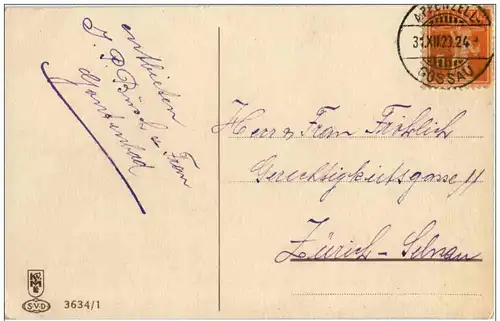 entbieten
J. P. Büsch u. Frau
Gontenbad
APPENZELL
31.XII.23.24
GOSSAU
Herr u. Frau Fröhlich
Gerechtigkeitsgasse 11
Zürich-Selnau
S.V.D
3634/1